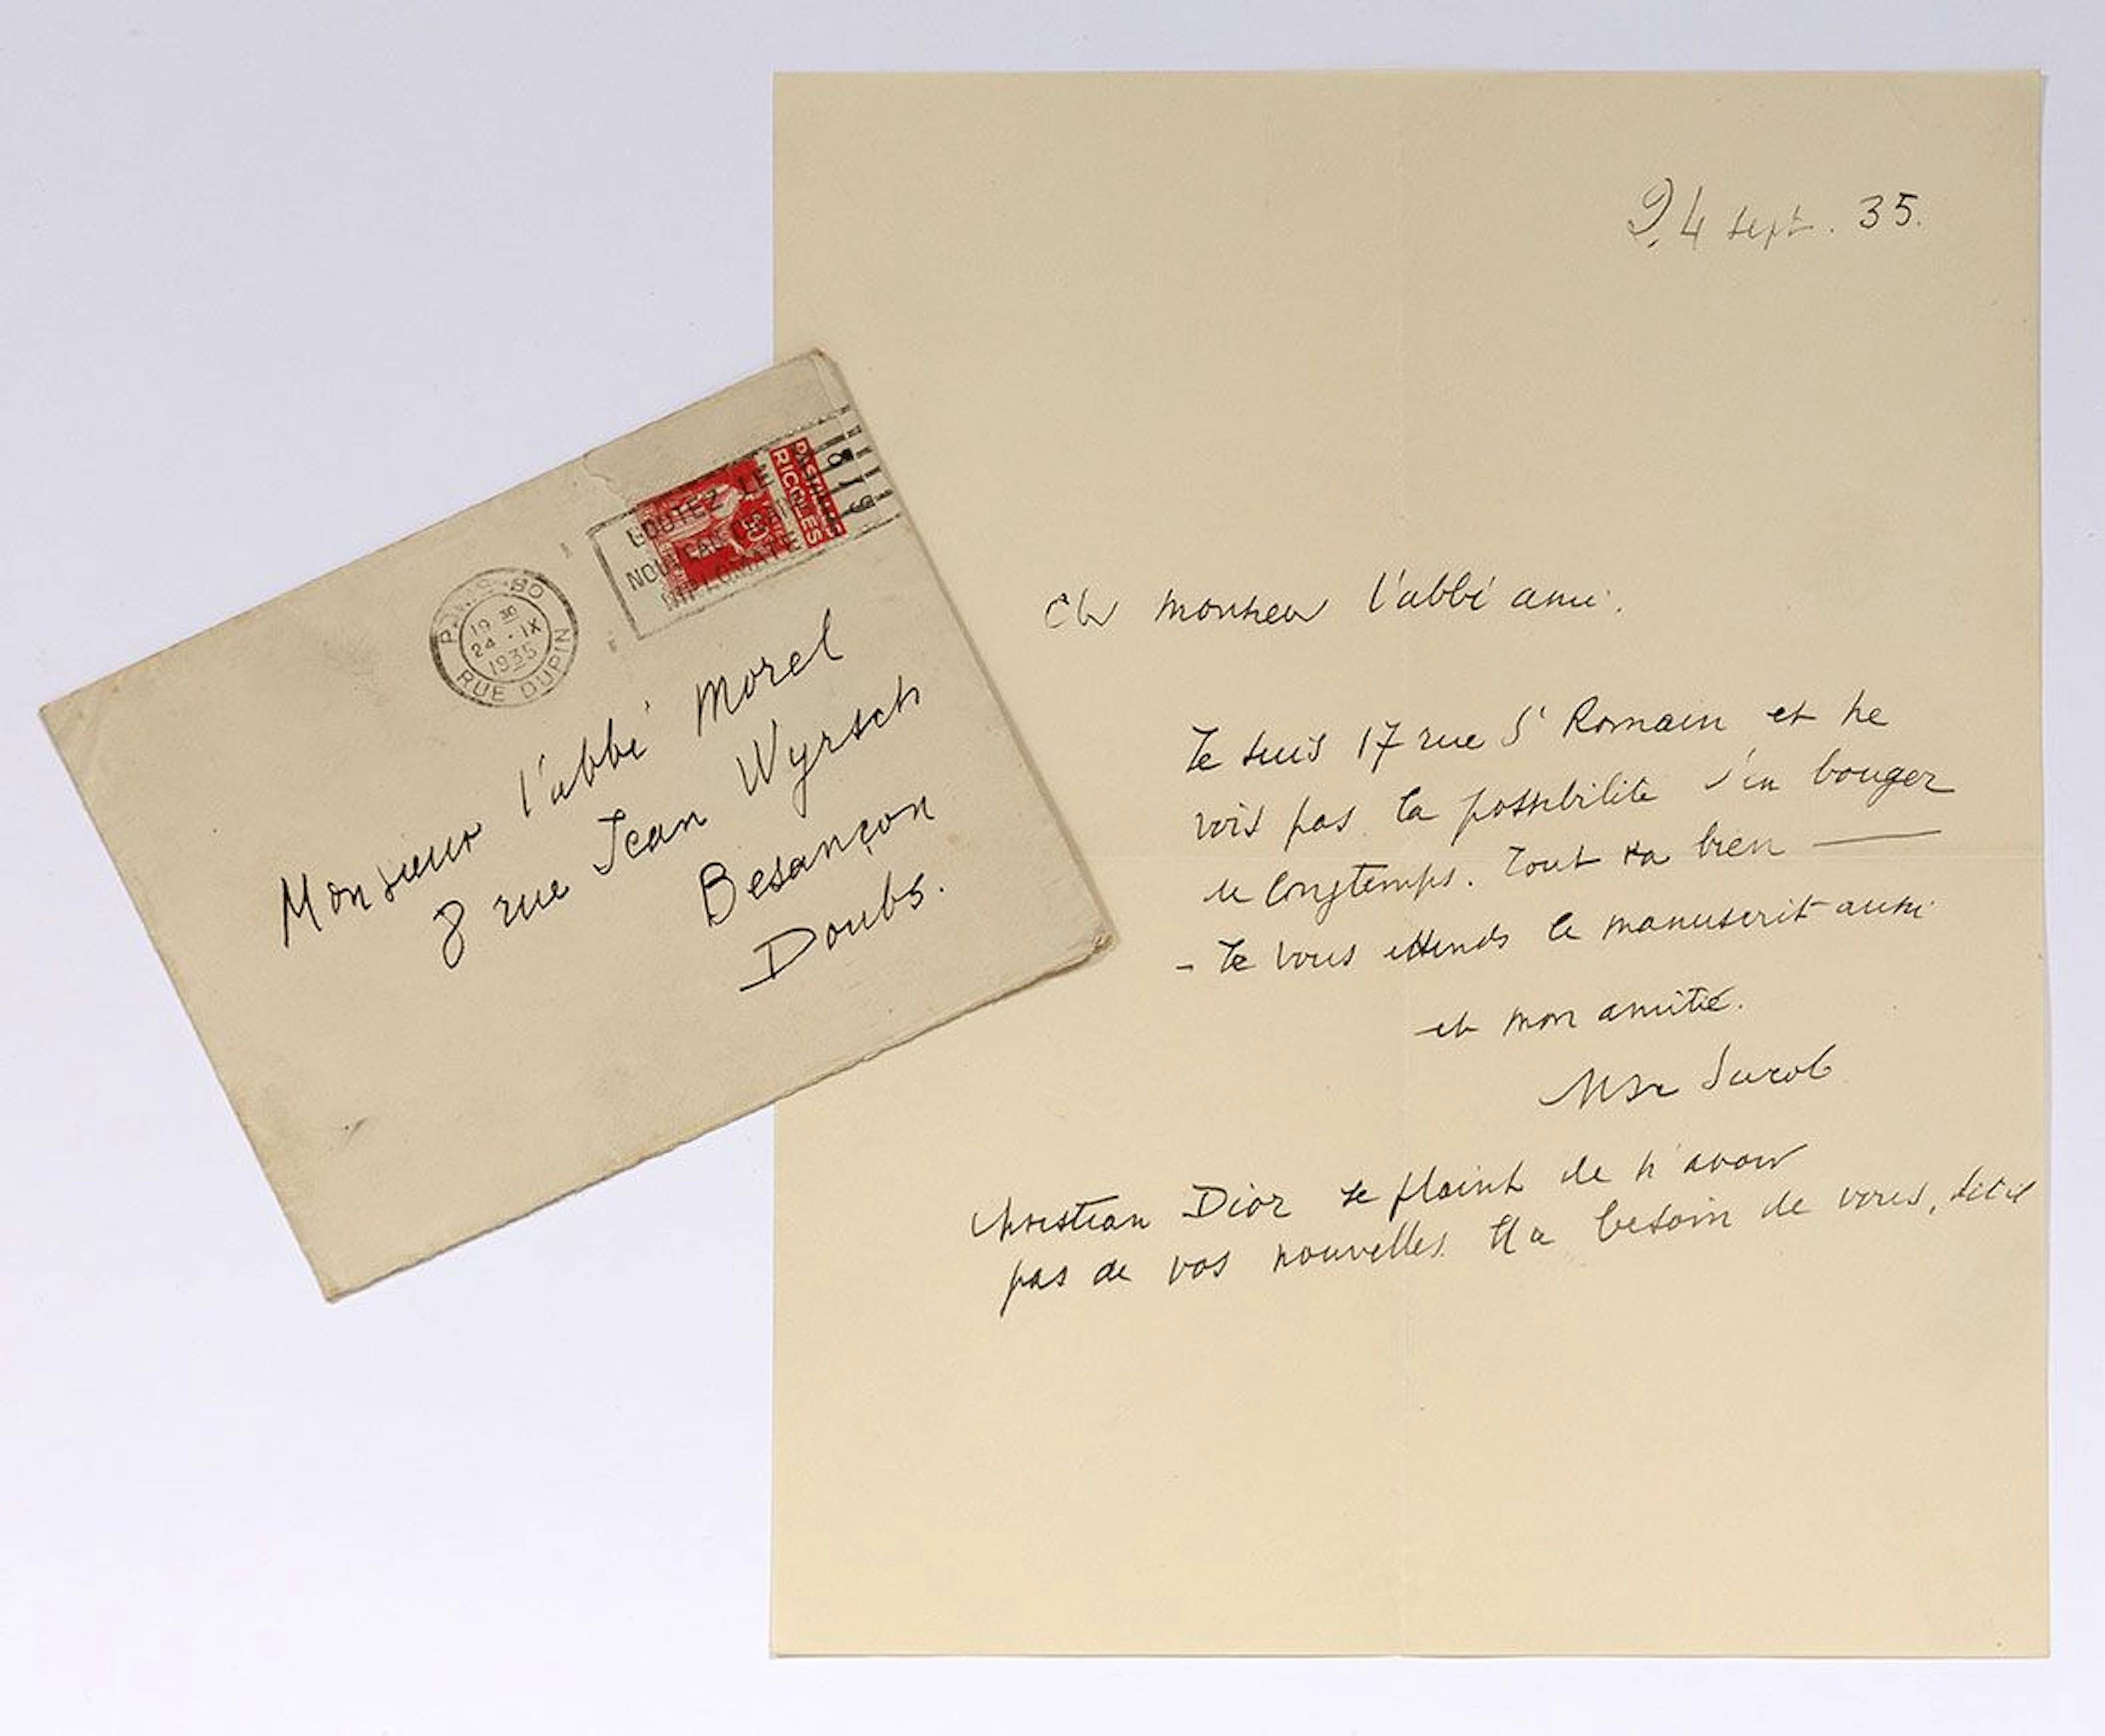 PARIS 90
19 30
24 - IX
1935
RUE DUPIN
GOUTEZ LE
NOUVEAU
DIPLOMATE
RICQLES
Monsieur l'abbé Morel
8 rue Jean Wyrsch
Besançon
Doubs.
24 sept. 35.
Ch monsieur l'abbé ami.
Je suis 17 rue St Romain et ne
vois pas la possibilité d'en bouger
de longtemps. Tout va bien —
- Je vous attends le manuscrit aussi
et mon amitié.
Max Jacob
Christian Dior se plaint de n'avoir
pas de vos nouvelles. Il a besoin de vous, dit il